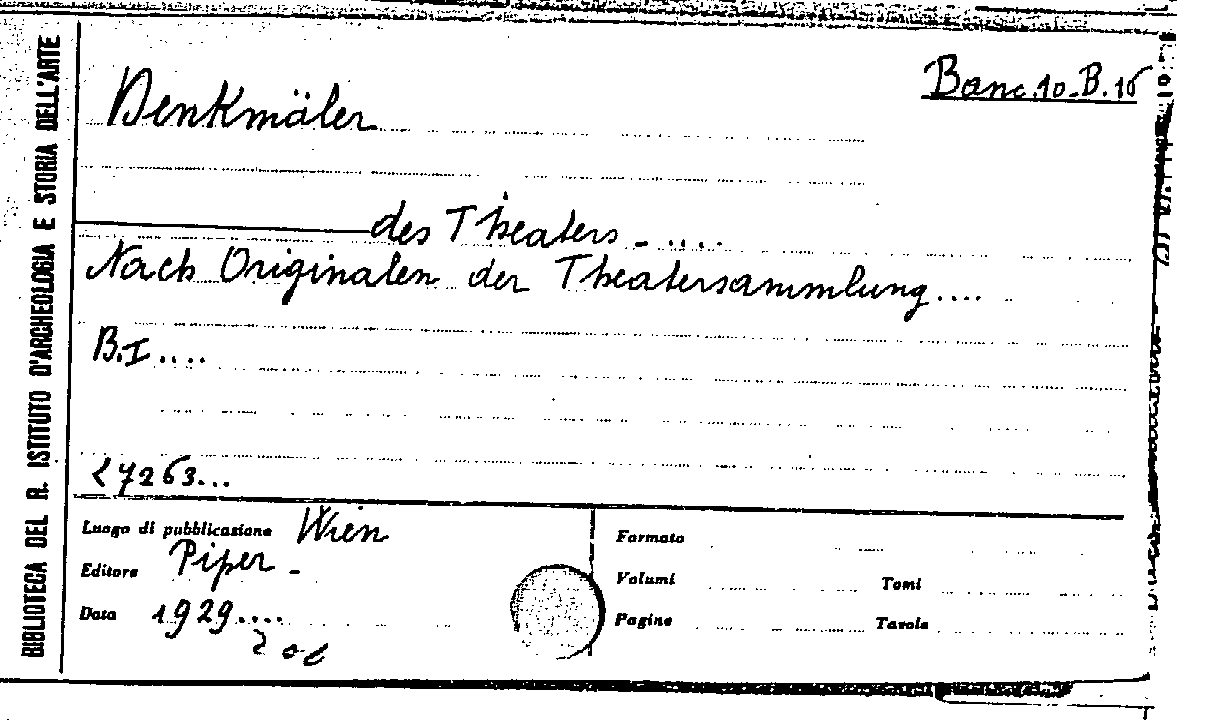 BIBLIOTECA DEL R. ISTITUTO D'ARCHEOLOGIA E STORIA DELL'ARTE
Banc.10-B.15
Denkmäler
des Theaters - ....
Nach Originalen der Theatersammlung....
B.I....
27263...
Luogo di pubblicazione Wien
Formato
Editore Piper -
Volumi Tomi
Data 1929....
Pagine Tavole